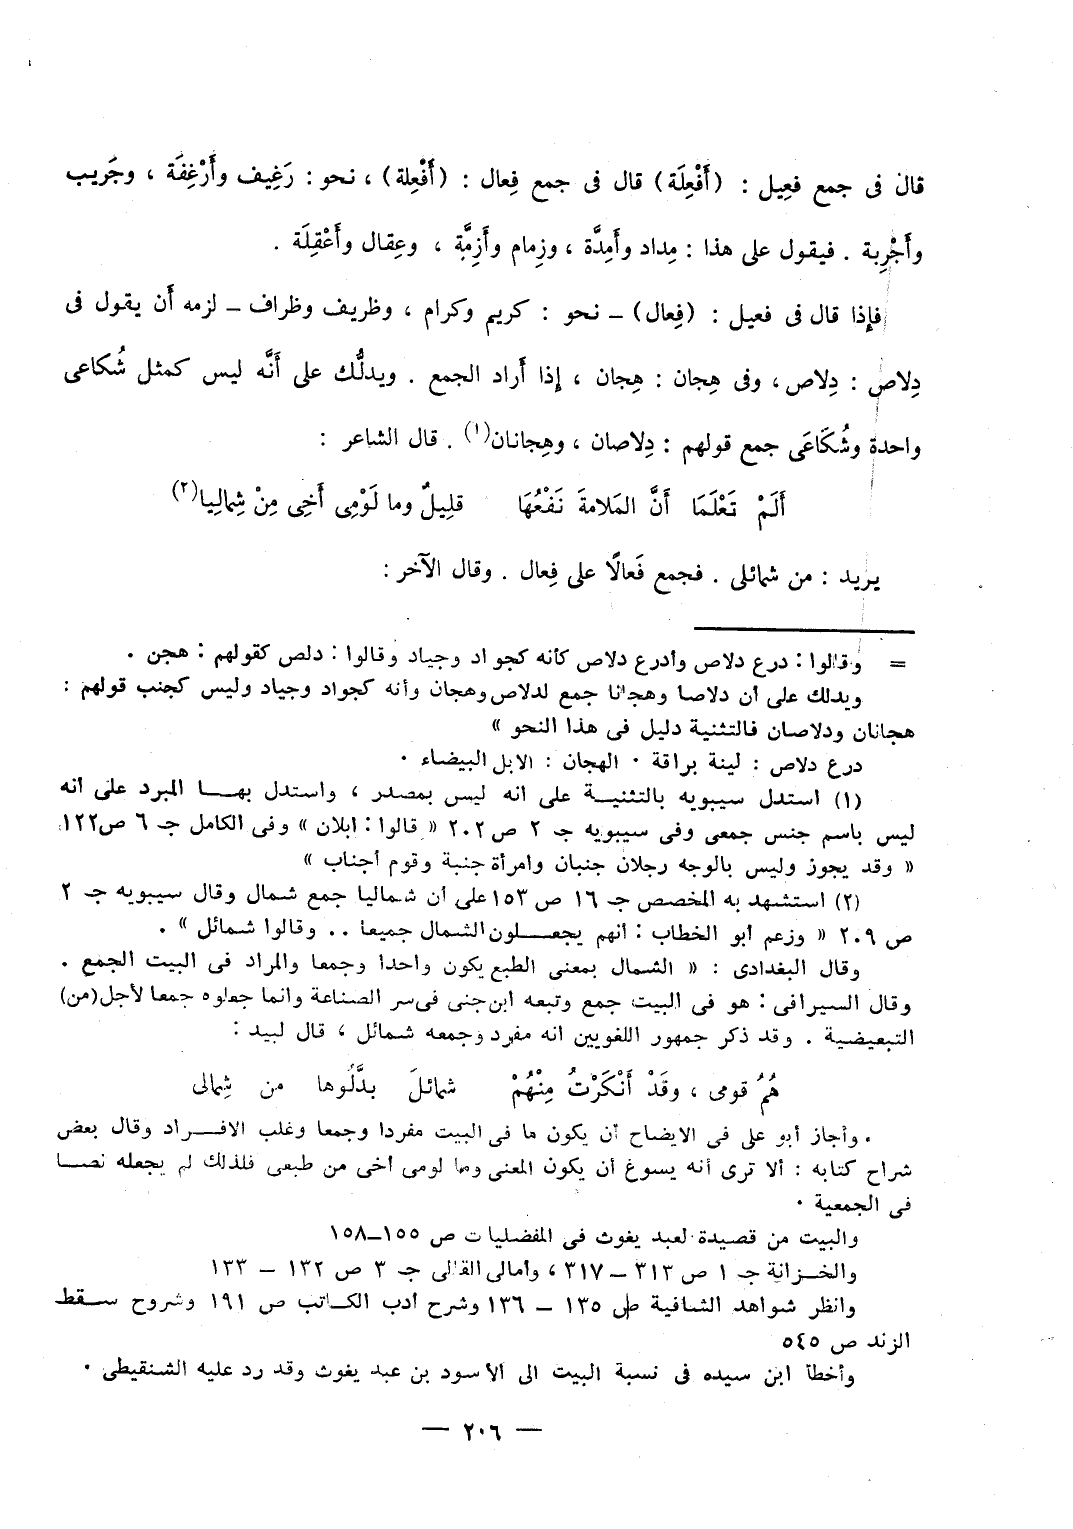 قال فى جمع فعِيل : (أَفْعِلَة) قال فى جمع فِعال : (أَفْعِلة) ، نحو : رَغِيف وأَرْغِفَة ، وجَريب
وأَجْرِبة . فيقول على هذا : مِداد وأَمِدَّة ، وزِمام وأَزِمَّة ، وعِقال وأَعْقِلَة .
فإِذا قال فى فعيل : (فِعال) ــ نحو : كريم وكرام ، وظريف وظراف ــ لزمه أَن يقول فى
دِلاص : دِلاص ، وفى هِجان : هِجان ، إِذا أَراد الجمع . ويدلُّك على أَنَّه ليس كمثل شُكاعى
واحدة وشُكَاعَى جمع قولهم : دِلاصان ، وهِجانان(١) . قال الشاعر :
أَلَمْ تَعْلَمَا أَنَّ المَلامةَ نَفْعُهَا قلِيلٌ وما لَوْمِى أَخِى مِنْ شِمالِيا(٢)
يريد : من شمائلى . فجمع فَعالًا على فِعال . وقال الآخر :
= وقالوا : درع دلاص وأدرع دلاص كأنه كجواد وجياد وقالوا : دلص كقولهم : هجن .
ويدلك على أن دلاصا وهجانا جمع لدلاص وهجان وأنه كجواد وجياد وليس كجنب قولهم :
هجانان ودلاصان فالتثنية دليل فى هذا النحو »
درع دلاص : لينة براقة . الهجان : الابل البيضاء .
(١) استدل سيبويه بالتثنيـة على انه ليس بمصدر ، واستدل بهـا المبرد على انه
ليس باسم جنس جمعى وفى سيبويه جـ ٢ ص ٢٠٢ « قالوا : ابلان » وفى الكامل جـ ٦ ص١٢٢
« وقد يجوز وليس بالوجه رجلان جنبان وامرأة جنبة وقوم أجناب »
(٢) استشهد به المخصص جـ ١٦ ص ١٥٣ على أن شماليا جمع شمال وقال سيبويه جـ ٢
ص ٢٠٩ « وزعم أبو الخطاب : أنهم يجعـلون الشمال جميعا .. وقالوا شمائل » .
وقال البغدادى : « الشمال بمعنى الطبع يكون واحدا وجمعا والمراد فى البيت الجمع .
وقال السيرافى : هو فى البيت جمع وتبعه ابن جنى فى سر الصناعة وانما جعلوه جمعا لأجل (من)
التبعيضية . وقد ذكر جمهور اللغويين انه مفرد وجمعه شمائل ، قال لبيد :
هُمُ قومى ، وقَدْ أَنْكَرْتُ مِنْهُمْ شمائلَ بدَّلُوها من شِمالى
. وأجاز أبو على فى الايضاح أن يكون ما فى البيت مفردا وجمعا وغلب الافـراد وقال بعض
شراح كتابه : ألا ترى أنه يسوغ أن يكون المعنى وما لومى أخى من طبعى فلذلك لم يجعله نصـا
فى الجمعية .
والبيت من قصيدة لعبد يغوث فى المفضليات ص ١٥٥ــ١٥٨
والخـزانة جـ ١ ص ٣١٣ ــ ٣١٧ ، وأمالى القالى جـ ٣ ص ١٣٢ ــ ١٣٣
وانظر شواهد الشافية ص ١٣٥ ــ ١٣٦ وشرح أدب الكـاتب ص ١٩١ وشروح سـقط
الزند ص ٥٤٥
وأخطأ ابن سيده فى نسبة البيت الى الأسود بن عبد يغوث وقد رد عليه الشنقيطى .
ــ ٢٠٦ ــ